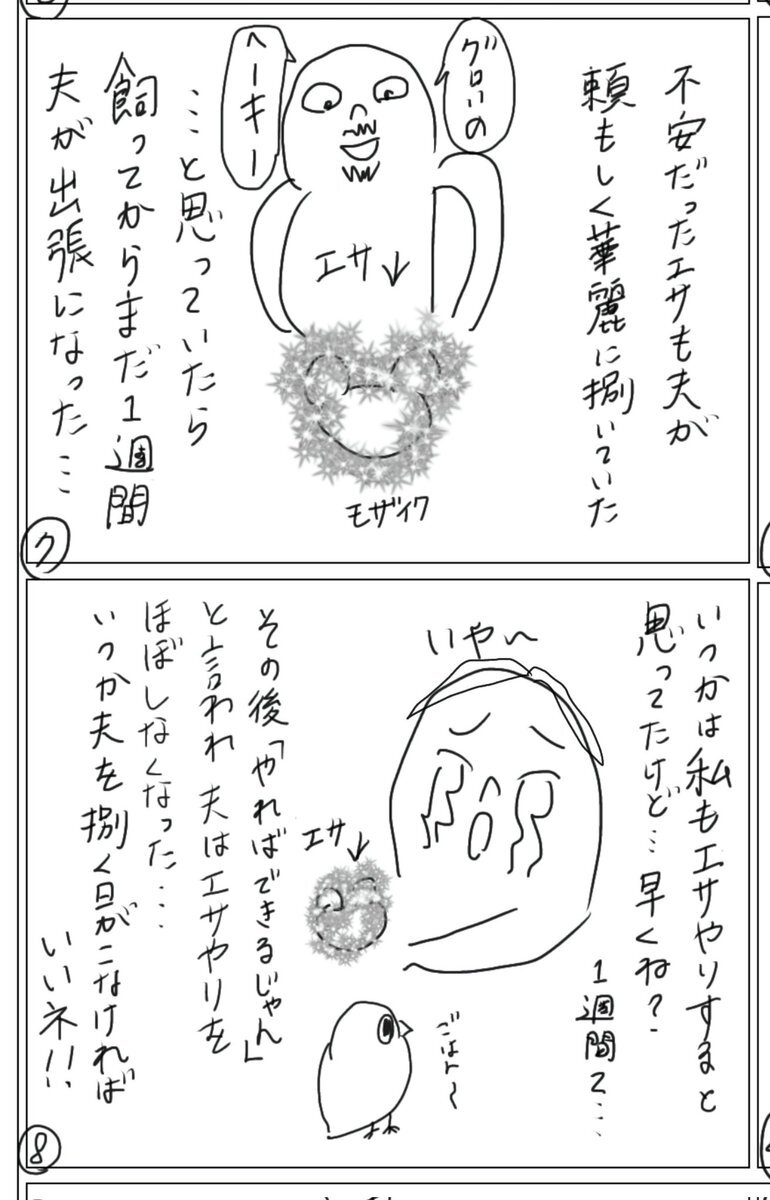 不安だったエサも夫が
頼もしく華麗に捌いていた
グロいの
ヘーキー
エサ↓
モザイク
…と思っていたら
飼ってからまだ1週間
夫が出張になった…
7
いつかは私もエサやりすると
思ってたけど…早くね?
1週間て…
いやー
エサ↓
ごはーん
その後「やればできるじゃん」
と言われ夫はエサやりを
ほぼしなくなった…
いつか夫を捌く日がこなければ
いいネ!!
8